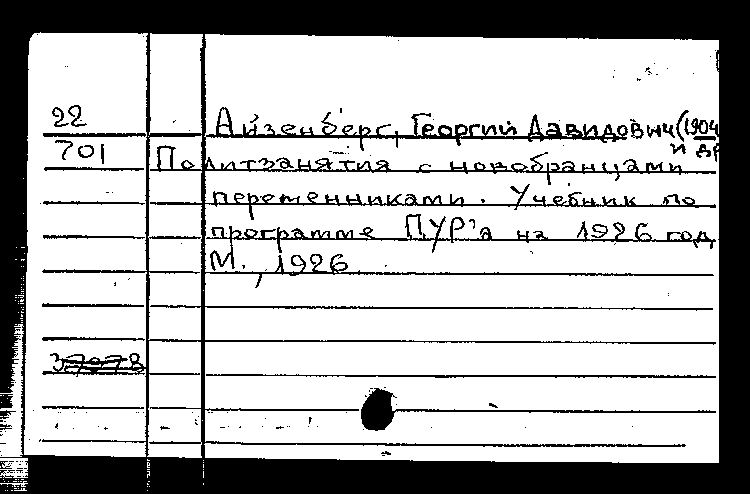 22 Айзенберг, Георгий Давидович (1904
701 и др
Политзанятия с новобранцами
переменниками. Учебник по
программе ПУР'а на 1926 год,
М., 1926
37978